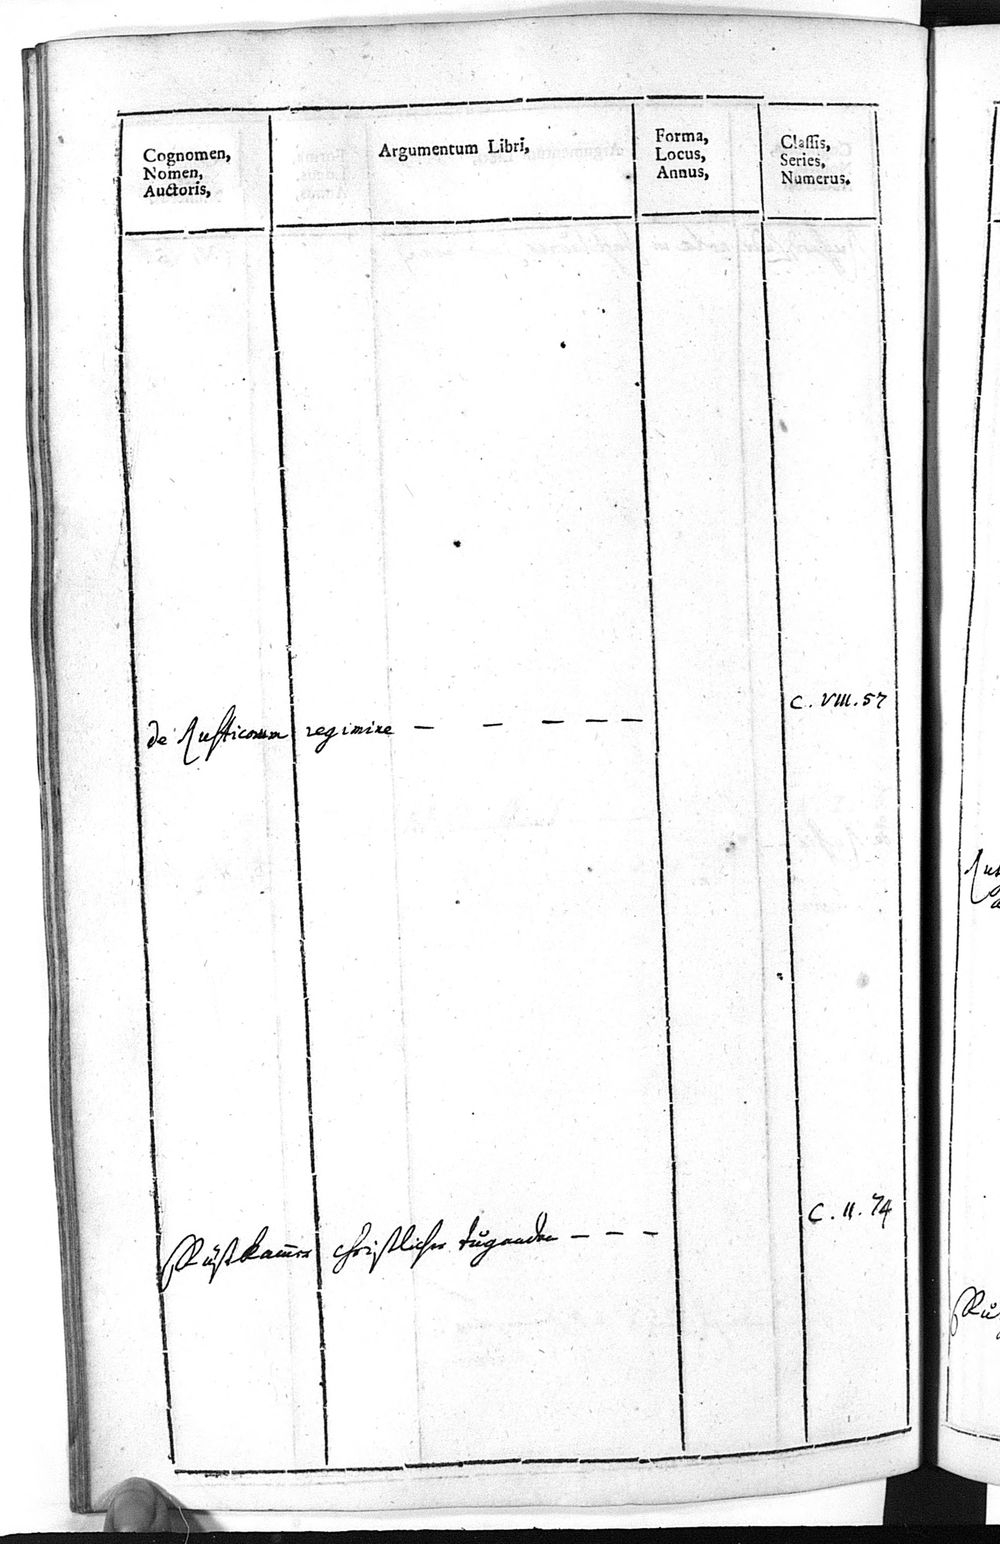 Cognomen,
Nomen,
Auctoris,
Argumentum Libri,
Forma,
Locus,
Annus,
Classis,
Series,
Numerus.
C. VIII. 57
de Rusticorum regimine — — — — —
C. II. 74
Rüstkam̅er christlicher tugenden — — —